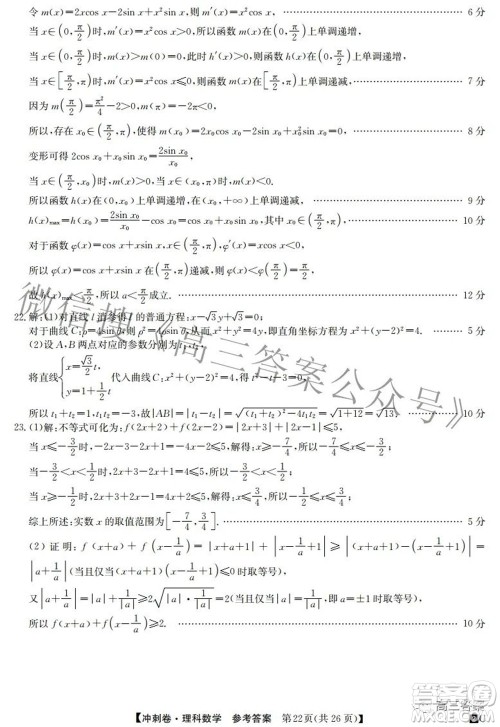 令 m(x)=2xcos x-2sin x+x²sin x,则 m′(x)=x²cos x, 6 分
当 x∈(0,π/2)时,m′(x)=x²cos x>0,所以 m(x)在(0,π/2)上单调递增,
当 x∈(0,π/2)时,m(x)>0,此时 h′(x)>0,所以函数 h(x)在(0,π/2]上单调递增,
当 x∈[π/2,π)时,m′(x)=x²cos x≤0,所以 m(x)在[π/2,π)上单调递减, 7 分
因为 m(π/2)=π²/4-2>0,m(π)=-2π<0,
所以,存在 x₀∈(π/2,π),使得 m(x₀)=2x₀cos x₀-2sin x₀+x₀²sin x₀=0, 8 分
变形可得 2cos x₀+x₀sin x₀=2sin x₀/x₀.
当 x∈(π/2,x₀)时,m(x)>0;当 x∈(x₀,π)时,m(x)<0.
所以函数 h(x)在(0,x₀)上单调递增,在(x₀,+∞)上单调递减, 9 分
h(x)max=h(x₀)=2sin x₀/x₀-cos x₀-x₀sin x₀=cos x₀+x₀,其中 x₀∈(π/2,π). 10 分
对于函数 φ(x)=cos x+sin x,x∈(π/2,π),φ′(x)=xcos x<0.
所以函数 φ(x)在(π/2,π)上单调递减,所以 φ(x)<φ(π/2)=π/2.
故 h(x)max<π/2,所以 a<π/2成立. 12 分
22.解:(1)对直线 l 消参得 l 的普通方程:x-√3y+√3=0;
对于曲线 C:ρ=4sin θ,ρ²=4ρsin θ,∴曲线 C 的直角坐标方程为:x²+(y-2)²=4. 5 分
(2)设 A,B 两点对应的参数分别为 t₁,t₂,
将直线{x=√3/2 t, y=1+1/2 t 代入曲线 C:x²+(y-2)²=4 得:t²-t-3=0,
所以 t₁+t₂=1,t₁t₂=-3,故|AB|=|t₁-t₂|=√((t₁+t₂)²-4t₁t₂)=√(1+12)=√13. 10 分
23.(1)解:不等式可化为:f(2x+2)+f(2x)=|2x+3|+|2x+1|≤5,
当 x≤-3/2时,-2x-3-2x-1=-4x-4≤5,解得:x≥-7/4,所以-7/4≤x≤-3/2;
当-3/2<x≤-1/2时,2x+3-2x-1=2≤5,所以-3/2<x≤-1/2;
当 x>-1/2时,2x+3+2x+1=4x+4≤5,解得:x≤1/4,所以-1/2<x≤1/4,
综上所述:实数 x 的取值范围为 5 分
(2)证明:f(x+a)+f(x-1/a)=|x+a+1|+|x-1/a+1|≥|(x+a+1)-(x-1/a+1)|=
|a+1/a|(当且仅当(x+a+1)(x-1/a+1)≤0时取等号),
又|a+1/a|=|a|+|1/a|≥2√(|a|·|1/a|)=2(当且仅当|a|=|1/a|,即 a=±1 时取等号),
所以 f(x+a)+f(x-1/a)≥2. 10 分
【冲刺卷·理科数学 参考答案 第22页(共26页)】
微信搜《高三答案公众号》